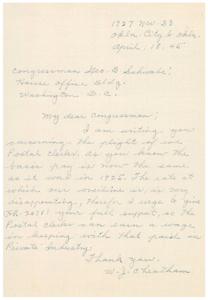 1927 NW 33
Okla. City 6 Okla.
April. 18. 45
Congressman Geo. B. Schwabe:
House Office Bldg:
Washington D. C.
My dear Congressman;
I am writing you
concerning the plight of we
Postal Clerks, as you know the
basic pay is now the same
as it was in 1925. The rate at
which our overtime is, is very
disappointing, therefor I urge to give
HR 2071! your full support, so the
Postal Clerks can earn a wage
in keeping with that paid in
Private Industry.
Thank you.
W. J. Cheatham